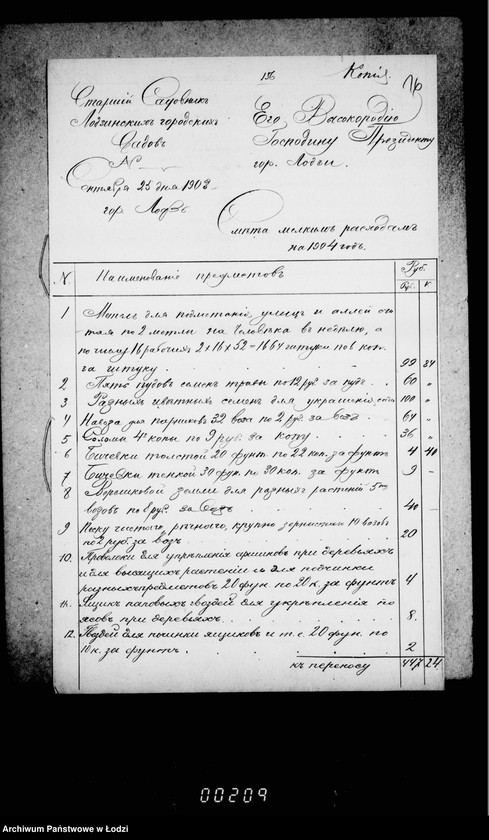 136
Копія.
16
Старшій Садовникъ
Лодзинскихъ городскихъ
Садовъ
N
Сентября 25 дня 1903
гор Лодзь
Его Высокородію
Господину Президенту
гор. Лодзи.
Смѣта мелкимъ расходамъ
на 1904 годъ.
N Наименованіе предметовъ Руб.
Р. К
1 Метлъ для подметанія, улицъ и аллей счи
тая по 2 метлы на человѣка въ недѣлю, а
по числу 16 рабочихъ 2 х 16 х 52 = 1664 штуки по 6 коп.
за штуку 99 84
2 Пять пудовъ семянъ травы по 12 руб за пудъ 60 "
3 Разныхъ цвѣтныхъ семянъ для украшенія, 100 "
4 Навоза для парниковъ 32 воза по 2 руб. за возъ 64 "
5 Соломы 4 копы по 9 руб. за копу 36 "
6 Бичевки толстой 20 фунт. по 22 коп. за фунтъ 4 40
7 Бичевки тонкой 30 фун. по 30 коп. за фунтъ 9 –
8 земли для разныхъ растеній 5
возовъ по 8 руб. за возъ 40 –
9 Песку чистого, рѣчного, крупно зернистаго 10 возовъ
по 2 руб. за возъ 20
10. Проволоки для укрѣпленія при деревьяхъ
и для растеній и для починки
разныхъ предметовъ 20 фун. по 20 к. за фунтъ 4
11. Ящикъ паповыхъ гвоздей для укрѣпленія по
ясовъ при деревьяхъ 8.
12. Гвоздей для починки ящиковъ и т. с. 20 фун. по
10 к. за фунтъ 2
къ переносу 447 24
00209
Archiwum Państwowe w Łodzi